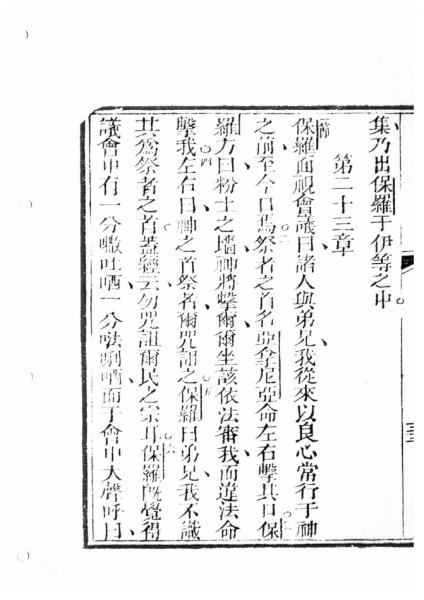 集乃出保羅于伊等之中
第二十三章
一節保羅面視會議曰諸人與弟兄我從來以良心常行于神
之前至今日焉二祭者之首名亞拿尼亞命左右擊其口三保
羅方曰粉士之墻神將擊爾爾坐該依法審我而違法命
擊我四左右曰神之首祭者爾咒詛之五保羅曰弟兄我不識
其為祭者之首蓋經云勿咒詛爾民之宗耳六保羅既覺得
議會中有一分吐哂一分唎哂而于會中大聲呼曰